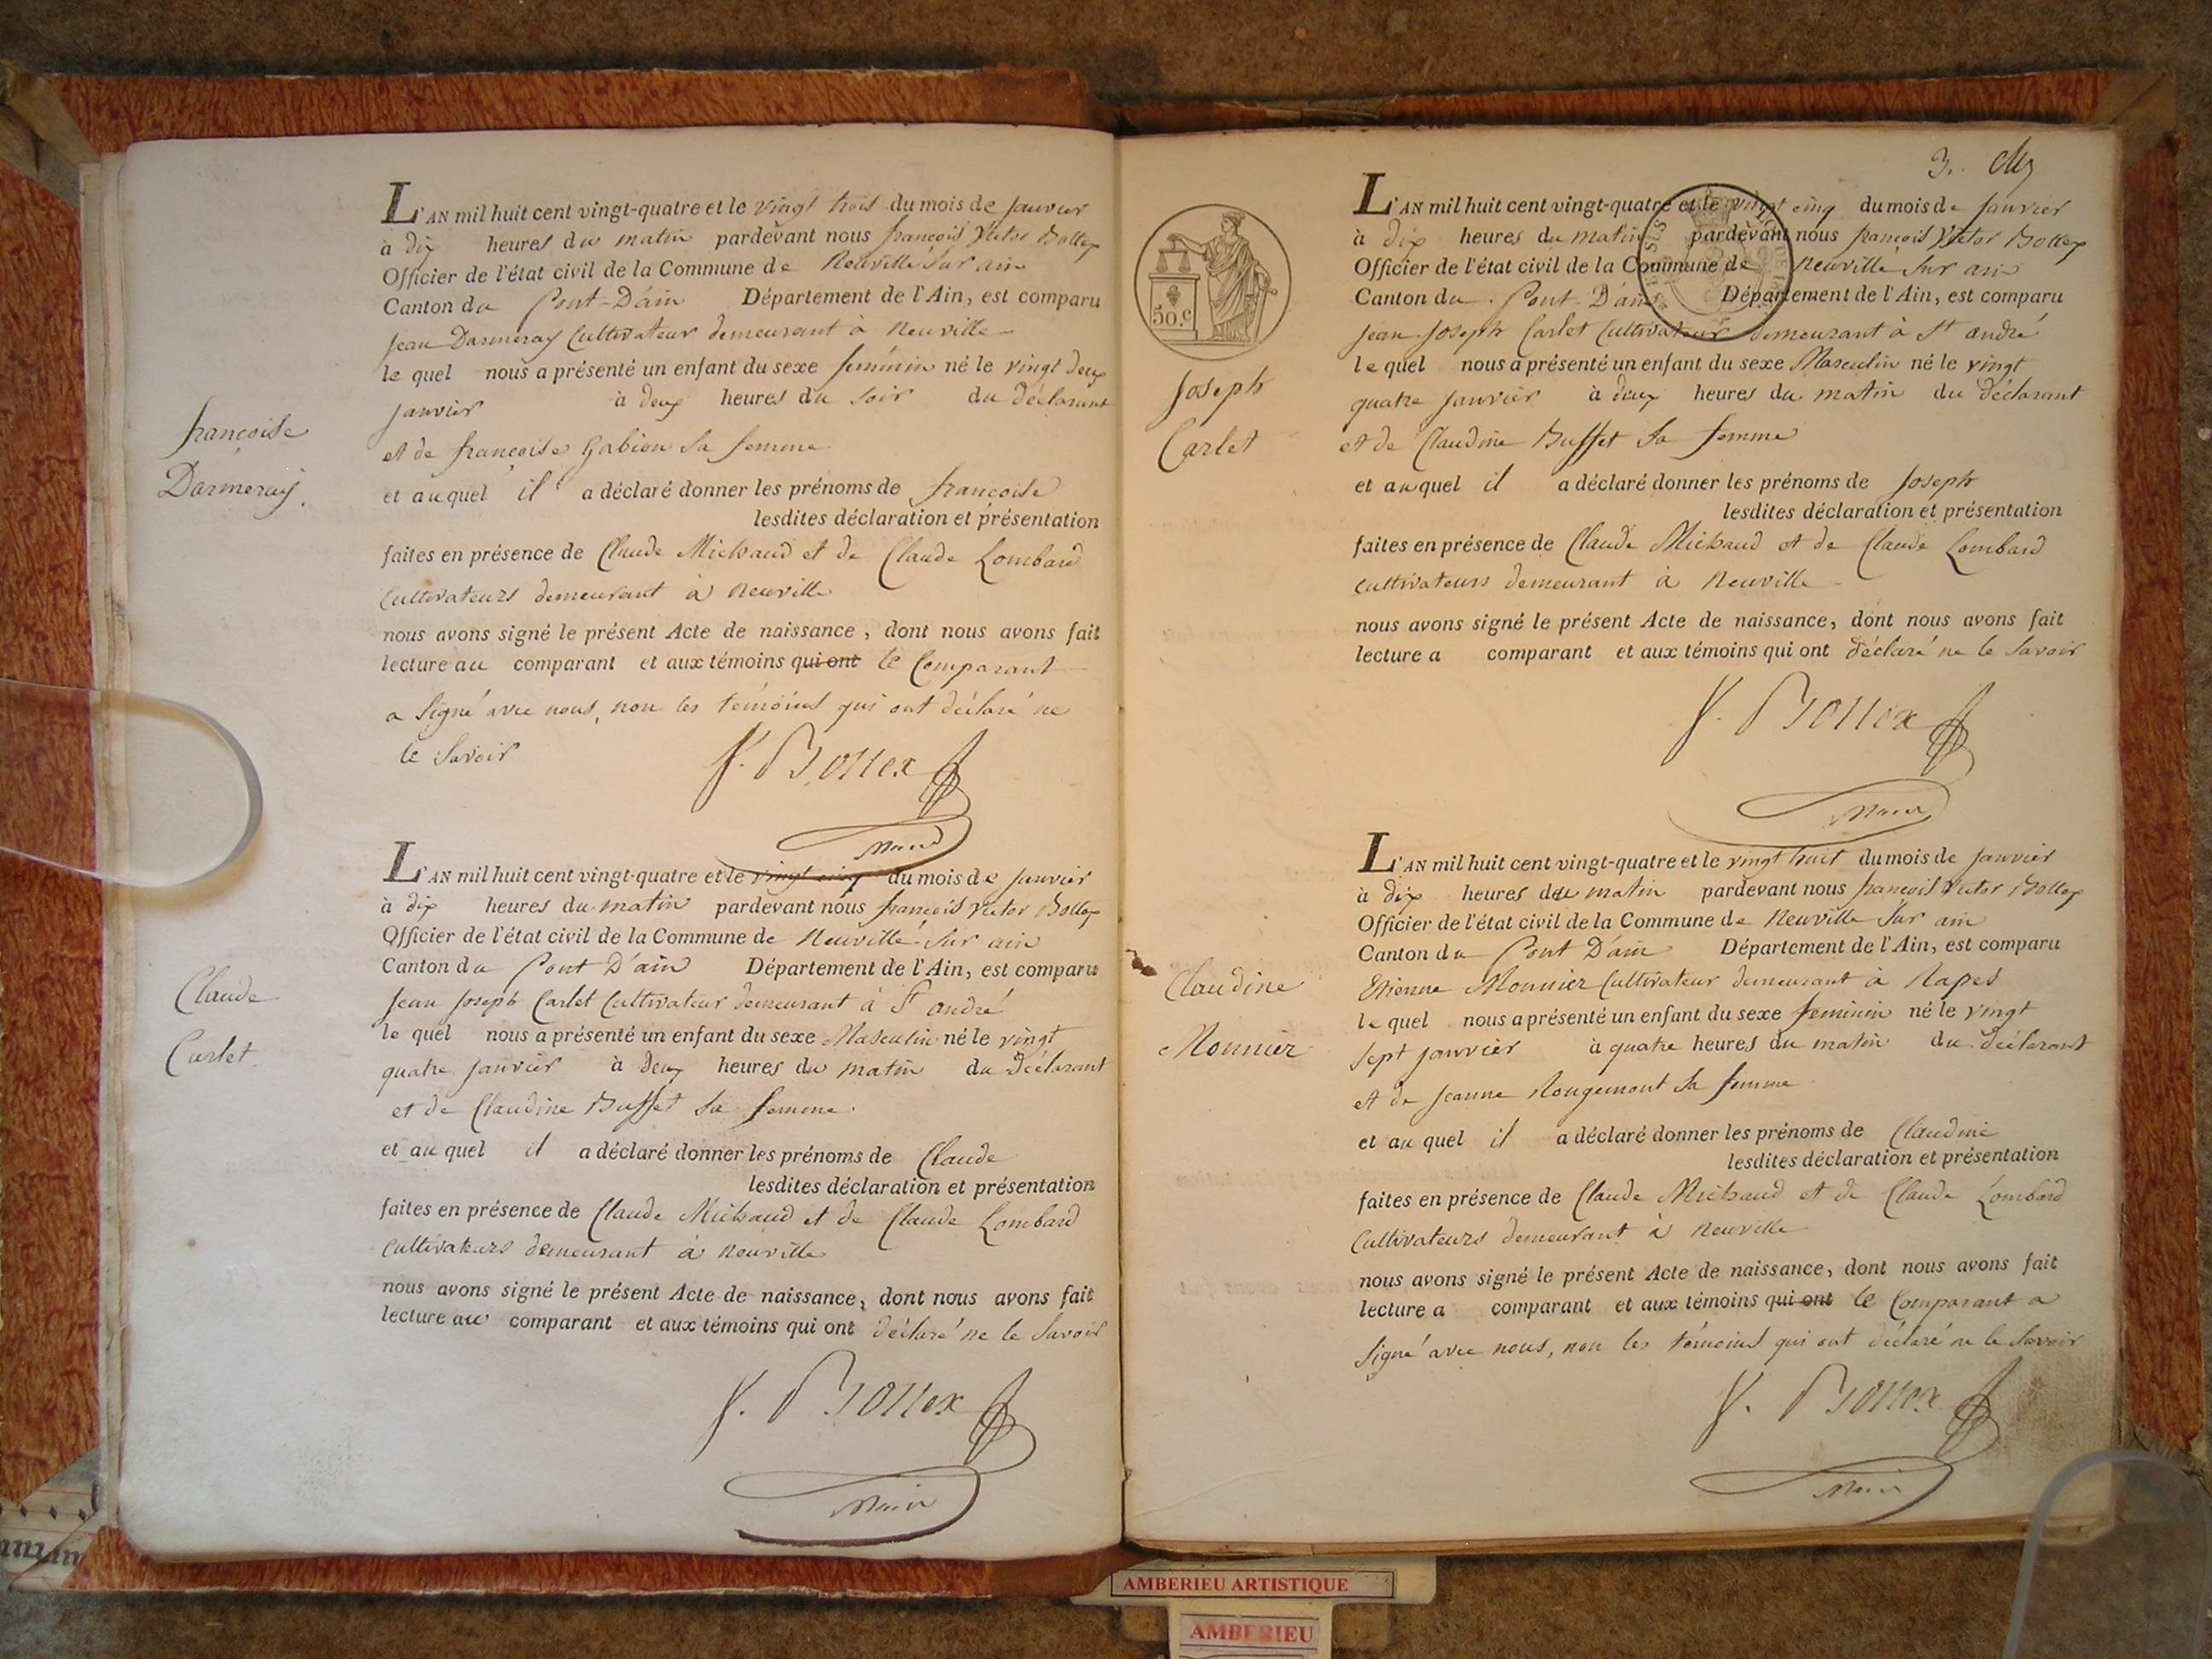 L'AN mil huit cent vingt-quatre et le vingt trois du mois de janvier
à dix heures du matin pardevant nous françois Victor Bollex
Officier de l'état civil de la Commune de Neuville sur ain
Canton du Pont-D'ain Département de l'Ain, est comparu
Jean Darmeray Cultivateur demeurant à Neuville
le quel nous a présenté un enfant du sexe feminin né le vingt deux
janvier à deux heures du soir du déclarant
et de françoise Gabion sa femme
et auquel il a déclaré donner les prénoms de françoise
lesdites déclaration et présentation
faites en présence de Claude Michaud et de Claude Lombard
Cultivateurs demeurant à Neuville
nous avons signé le présent Acte de naissance, dont nous avons fait
lecture au comparant et aux témoins qui ont le Comparant
a signé avec nous, non les témoins qui ont déclaré ne
le savoir
V. Bollex
Maire
françoise
Darmeray.
L'AN mil huit cent vingt-quatre et le vingt cinq du mois de janvier
à dix heures du matin pardevant nous françois Victor Bollex
Officier de l'état civil de la Commune de Neuville sur ain
Canton du Pont D'ain Département de l'Ain, est comparu
Jean Joseph Carlet Cultivateur demeurant à St andré
le quel nous a présenté un enfant du sexe Masculin né le vingt
quatre janvier à deux heures du matin du Déclarant
et de Claudine Buffet sa femme
et au quel il a déclaré donner les prénoms de Claude
lesdites déclaration et présentation
faites en présence de Claude Michaud et de Claude Lombard
Cultivateurs demeurant à Neuville
nous avons signé le présent Acte de naissance, dont nous avons fait
lecture au comparant et aux témoins qui ont déclaré ne le savoir
V. Bollex
Maire
Claude
Carlet.
3.
L'AN mil huit cent vingt-quatre et le vingt cinq du mois de janvier
à dix heures du matin pardevant nous françois Victor Bollex
Officier de l'état civil de la Commune de Neuville sur ain
Canton du Pont D'ain Département de l'Ain, est comparu
Jean Joseph Carlet Cultivateur demeurant à St andré
le quel nous a présenté un enfant du sexe Masculin né le vingt
quatre janvier à deux heures du matin du Déclarant
et de Claudine Buffet sa femme
et auquel il a déclaré donner les prénoms de Joseph
lesdites déclaration et présentation
faites en présence de Claude Michaud et de Claude Lombard
cultivateurs demeurant à Neuville
nous avons signé le présent Acte de naissance, dont nous avons fait
lecture a comparant et aux témoins qui ont déclaré ne le savoir
V. Bollex
Maire
50.c
Joseph
Carlet
L'AN mil huit cent vingt-quatre et le vingt huit du mois de janvier
à dix heures du matin pardevant nous françois Victor Bollex
Officier de l'état civil de la Commune de Neuville sur ain
Canton du Pont D'ain Département de l'Ain, est comparu
Etienne Monnier Cultivateur demeurant à Rapes
le quel nous a présenté un enfant du sexe feminin né le vingt
sept janvier à quatre heures du matin du déclarant
et de Jeanne Rougemont sa femme
et au quel il a déclaré donner les prénoms de Claudine
lesdites déclaration et présentation
faites en présence de Claude Michaud et de Claude Lombard
Cultivateurs demeurant à Neuville
nous avons signé le présent Acte de naissance, dont nous avons fait
lecture a comparant et aux témoins qui ont le Comparant a
signé avec nous, non les témoins qui ont déclaré ne le savoir
V. Bollex
Maire
Claudine
Monnier
AMBERIEU ARTISTIQUE
AMBERIEU